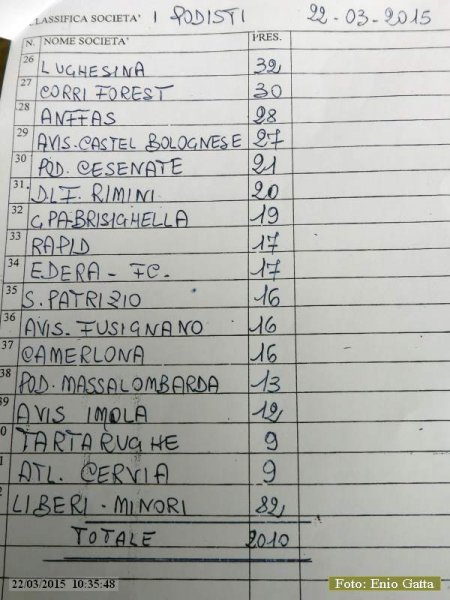 CLASSIFICA SOCIETA' I PODISTI 22-03-2015
N. NOME SOCIETA' PRES.
26 LUGHESINA 32
27 CORRI FOREST 30
28 ANFFAS 28
29 AVIS. CASTEL BOLOGNESE 27
30 POD. CESENATE 21
31. DLF. RIMINI 20
32 G.PA BRISIGHELLA 19
33 RAPID 17
34 EDERA - FC. 17
35 S. PATRIZIO 16
36 AVIS. FUSIGNANO 16
37 CAMERLONA 16
38 POD. MASSALOMBARDA 13
39 AVIS IMOLA 12
0 TARTARUGHE 9
1 ATL. CERVIA 9
2 LIBERI - MINORI 82
TOTALE 2010
22/03/2015 10:35:48
Foto: Enio Gatta